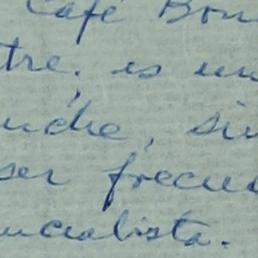 Café Bon
tre. es un
uche, sin
ser frecue
ncialista.